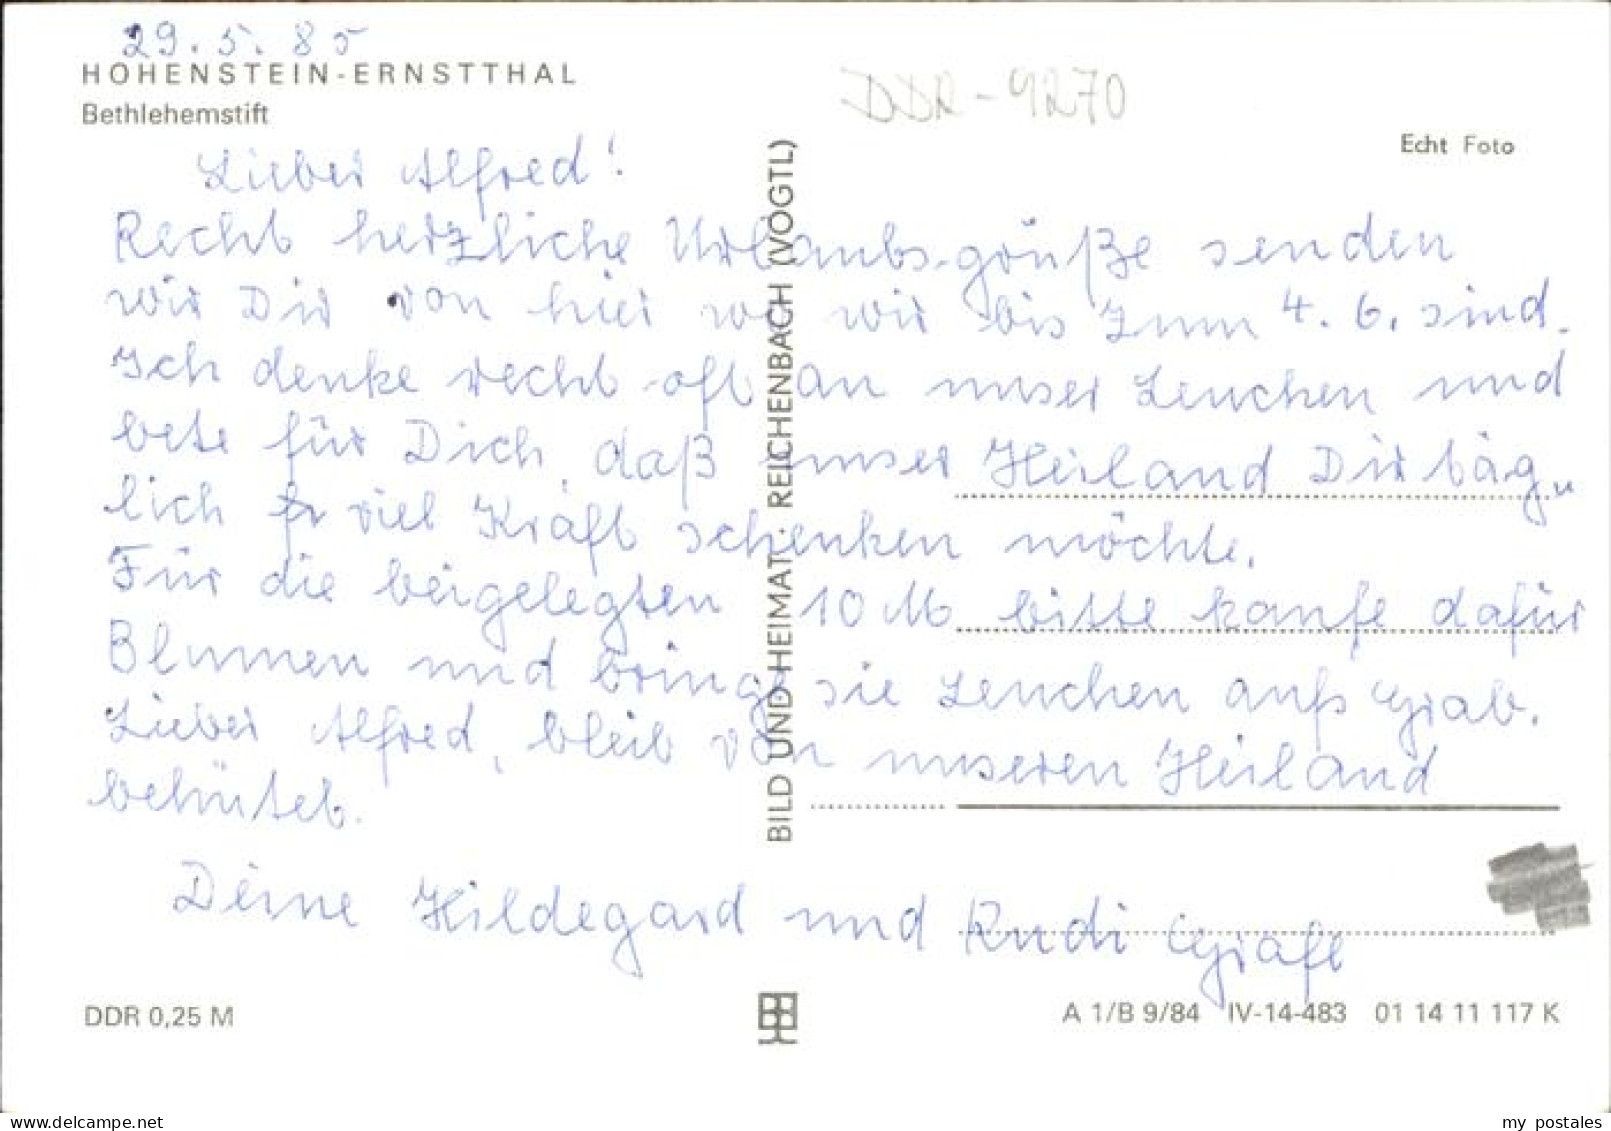 29.5.85
HOHENSTEIN-ERNSTTHAL
Bethlehemstift
DDR-9270
Echt Foto
Lieber Alfred!
Recht herzliche Urlaubsgrüße senden
wir Dir von hier wo wir bis zum 4.6. sind.
Ich denke recht oft an unser Lenchen und
bete für Dich, daß unser Heiland Dir täg-
lich viel Kraft schenken möchte.
Für die beigelegten 10 M bitte kaufe dafür
Blumen und bringe sie Lenchen aufs Grab.
Lieber Alfred, bleib von unseren Heiland
behütet.
Deine Hildegard und Rudi Grafe
BILD UND HEIMAT · REICHENBACH (VOGTL)
DDR 0,25 M
A 1/B 9/84 IV-14-483 01 14 11 117 K
delcampe.net
my_postales